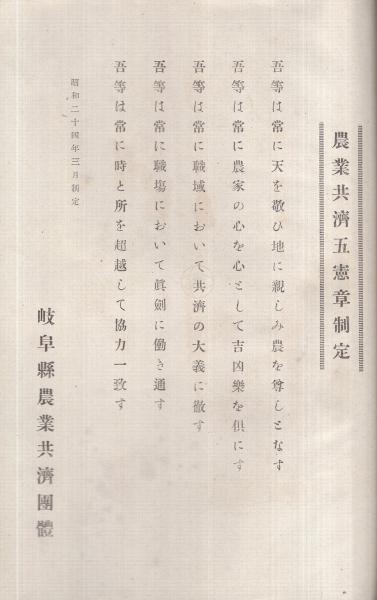 農業共濟五憲章制定
吾等は常に天を敬ひ地に親しみ農を尊しとなす
吾等は常に農家の心を心として吉凶樂を倶にす
吾等は常に職域において共濟の大義に徹す
吾等は常に職場において眞劍に働き通す
吾等は常に時と所を超越して協力一致す
昭和二十四年三月新定
岐阜縣農業共濟團體